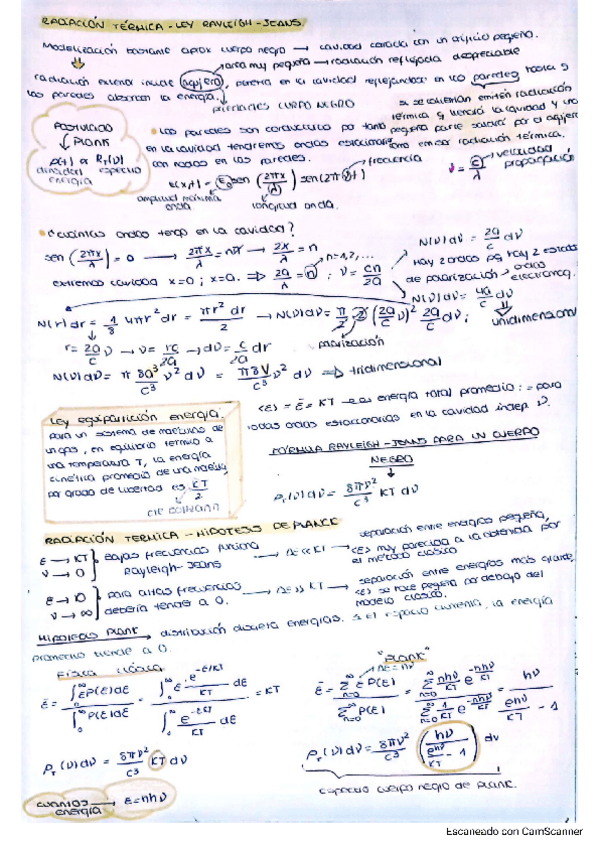 RADIACIÓN TÉRMICA - LEY RAYLEIGH - JEANS.
Modelización bastante aprox cuerpo negro → cavidad cerrada con un orificio pequeño.
área muy pequeña → radiación reflejada despreciable
radiación exterior incide agujero, penetra en la cavidad reflejándose en las paredes hasta q
las paredes absorban la energía.
propiedades CUERPO NEGRO
si se calientan emiten radiación
térmica q llenará la cavidad y una
pequeña parte saldrá por el agujero
como emisor radiación térmica.
POSTULADO
PLANK
ρ(t) α R_T(ν)
densidad espectro
energía
• Las paredes son conductoras por tanto
en la cavidad tendremos ondas estacionarias
con nodos en las paredes.
E(x,t) = E₀ sen (2πx/λ) sen(2πνt)
frecuencia
amplitud máxima
onda
longitud onda.
ν = c/λ
velocidad
propagación
• ¿Cuántas ondas tengo en la cavidad?
sen (2πx/λ) = 0 → 2πx/λ = nπ → 2x/λ = n
n = 1, 2, ...
extremos cavidad x=0 ; x=a. ⇒ 2a/λ = n ; ν = cn/2a
N(ν)dν = 2a/c dν
Hay 2 ondas pq hay 2 estados
de polarización ondas
electromag.
N(ν)dν = 4a/c dν
unidimensional
N(r)dr = 1/8 4πr² dr = πr² dr/2 → N(ν)dν = π/2 · 2 (2a/c ν)² 2a/c dν ;
polarización
r = 2a/c ν → ν = rc/2a → dν = c/2a dr
N(ν)dν = π 8a³/c³ ν² dν = π8V/c³ ν² dν ⇒ tridimensional
Ley equipartición energía:
para un sistema de moléculas de
un gas, en equilibrio térmico a
una temperatura T, la energía
cinética promedio de una molécula
por grado de libertad es KT/2
cte Boltzmann
<ε> = ε̄ = KT → es energía total promedio : = para
todas ondas estacionarias en la cavidad indep ν.
FÓRMULA RAYLEIGH - JEANS PARA UN CUERPO
NEGRO
ρ_T(ν)dν = 8πν²/c³ KT dν
RADIACIÓN TERMICA - HIPOTESIS DE PLANCK
ε → KT
ν → 0
bajas frecuencias funciona
Rayleigh-Jeans
→ Δε << KT
separación entre energías pequeña,
<ε> muy parecida a la obtenida por
el método clásico
ε → 0
ν → ∞
para altas frecuencias
debería tender a 0.
→ Δε >> KT
separación entre energías más grande,
<ε> se hace pequeña por debajo del
modelo clásico.
HIPÓTESIS PLANK → distribución discreta energías. Si el espacio aumenta, la energía
promedio tiende a 0.
Física Clásica
ε̄ = ∫₀^∞ εP(ε)dε / ∫₀^∞ P(ε)dε = ∫₀^∞ ε e^(-ε/KT)/KT dε / ∫₀^∞ e^(-ε/KT)/KT dε = KT
ρ_T(ν)dν = 8πν²/c³ KT dν
cuantos
energía → ε = nhν
"PLANK"
Δε = hν
ε̄ = Σ_{n=0}^∞ ε P(ε) / Σ_{n=0}^∞ P(ε) = Σ_{n=0}^∞ nhν/KT e^(-nhν/KT) / Σ_{n=0}^∞ 1/KT e^(-nhν/KT) = hν / e^(hν/KT) - 1
ρ_T(ν)dν = 8πν²/c³ (hν / e^(hν/KT) - 1) dν
espectro cuerpo negro de PLANK.
Escaneado con CamScanner